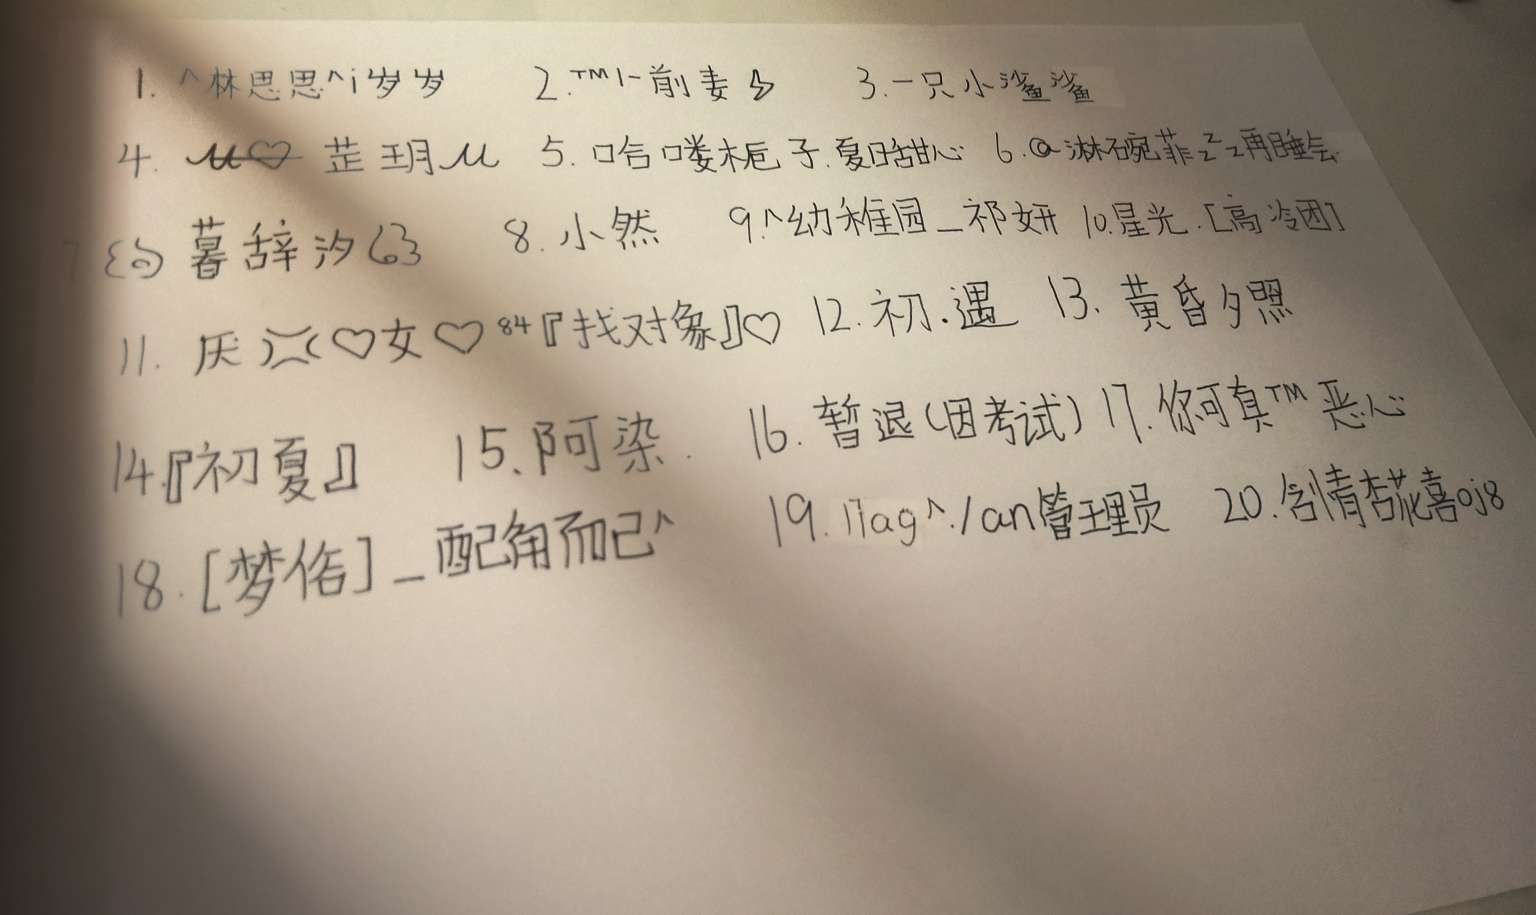 1. ^林思思^i岁岁 2.™1-前妻 3.一只小鲨鲨
4. 芷玥 5. 哈喽栀子.夏日甜心 6.@淋碗菲 再睡会.
暮辞汐 63 8. 小然 9.^幼稚园_祁妍 10.星光.[高冷团]
11. 厌 ♡女♡84『找对象』♡ 12.初.遇 13. 黄昏夕照
14.『初夏』 15.阿染. 16.暂退(因考试) 17.你可真™恶心
18.[梦俗]_配角而己^ 19. 管理员 20.